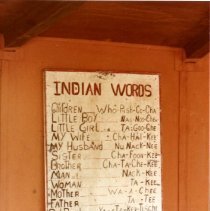 INDIAN WORDS
CHILDREN Who-Pish-Co-Cha
LITTLE BOY Nai-Noo-Chee
LITTLE GIRL TA-GOO-CHE
MY WIFE CHA-HAI-KEE
MY HUSBAND NU NACK-KEE
SISTER CHA-FOON-KEE
BROTHER CHA-TA-CHE-KEE
MAN NACK-KEE
WOMAN TA-KEE
MOTHER WA-A-CHEE
FATHER TA-TEE